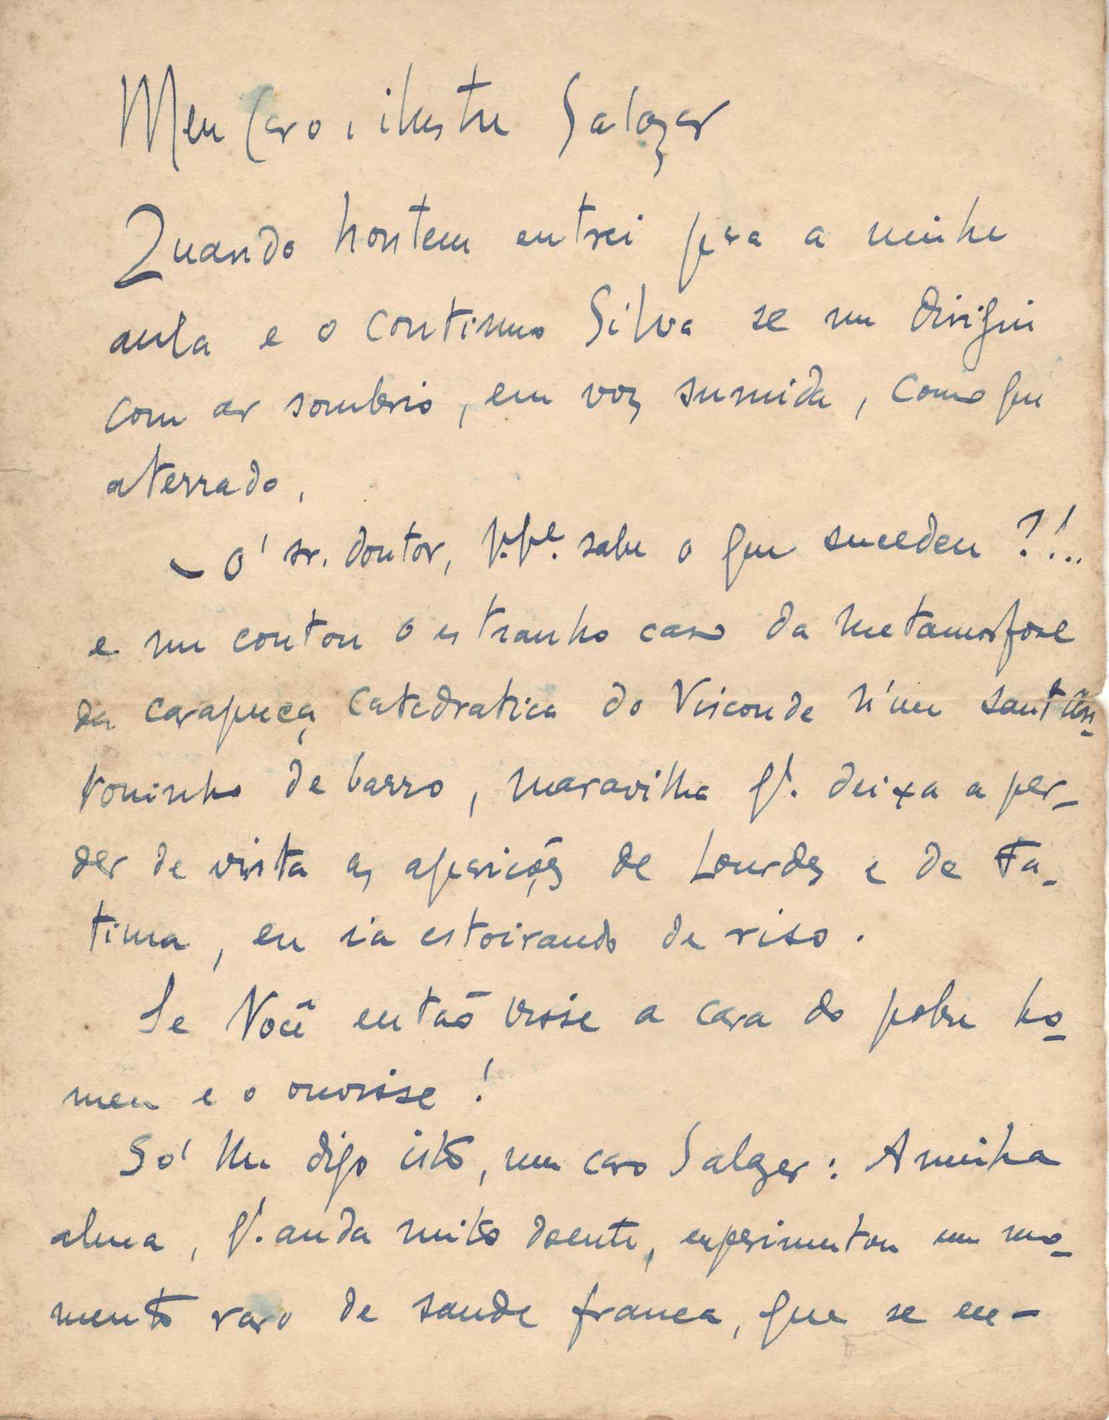 Meu Caro e ilustre Salazar
Quando hontem entrei pra a minha
aula e o continuo Silva se me dirigiu
com ar sombrio, em voz sumida, como que
aterrado,
— O' sr. doutor, sabe o que sucedeu ?!..
e me contou o estranho caso da metamorfose
da carapuça catedratica do Visconde n'um sant'An-
toninho de barro, maravilha q'. deixa a per-
der de vista as aparições de Lourdes e de Fa-
tima, eu ia estoirando de riso.
Se Você então visse a cara do pobre ho-
mem e o ouvisse !
Só lhe digo isto, meu caro Salazar: A minha
alma, q'. anda muito doente, experimentou um mo-
mento raro de saude franca, que se en-